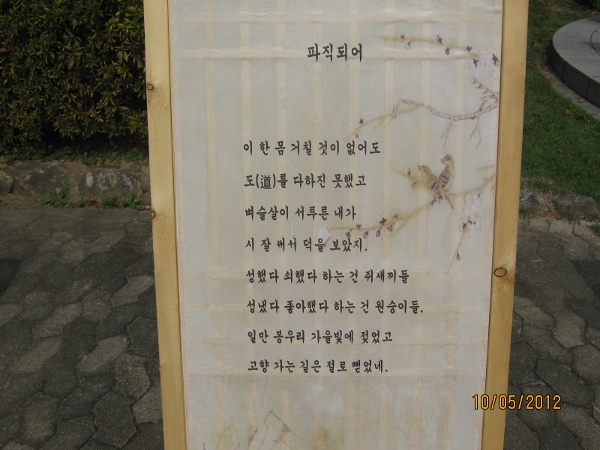 파직되어
이 한 몸 거칠 것이 없어도
도(道)를 다하진 못했고
벼슬살이 서투른 내가
시 잘 써서 덕을 보았지.
성했다 쇠했다 하는 건 쥐새끼들
성냈다 좋아했다 하는 건 원숭이들.
일만 봉우리 가을빛에 젖었고
고향 가는 길은 절로 뻗었네.
10/05/2012